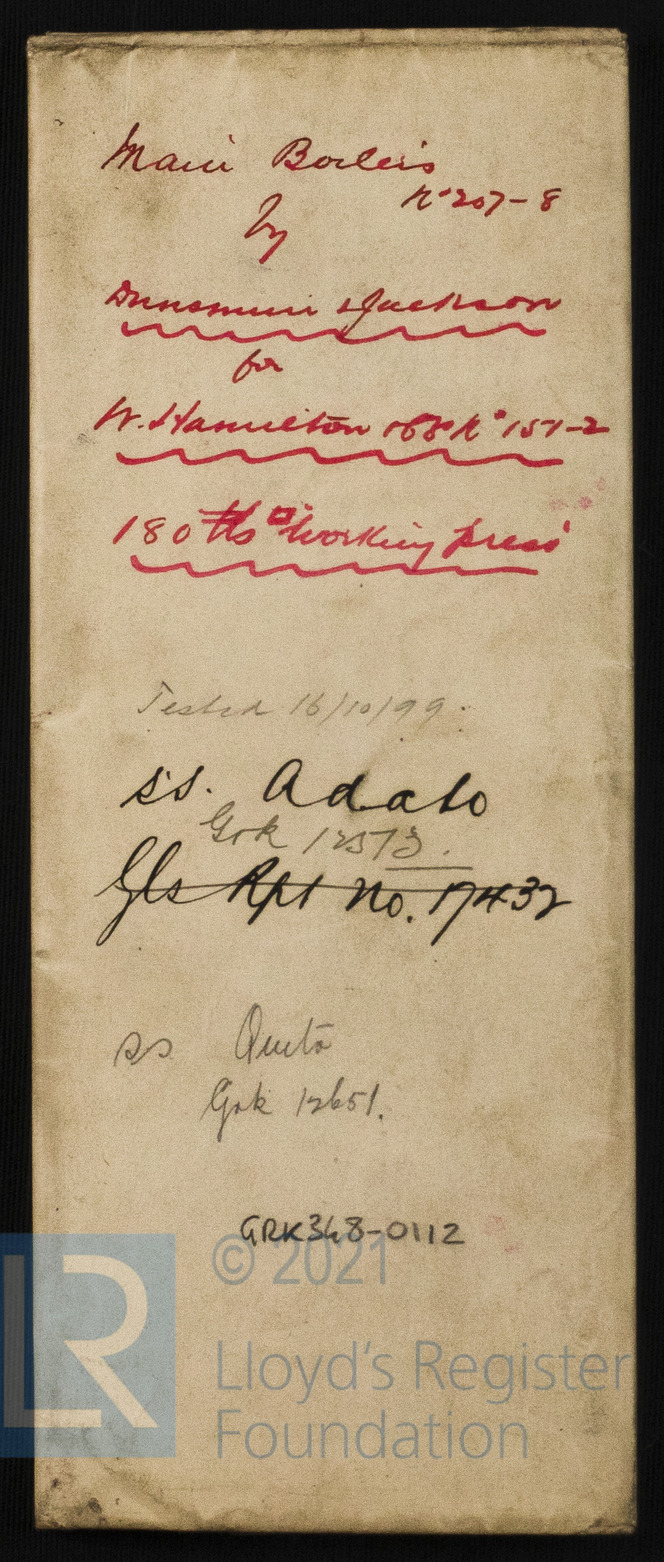 Main Boilers
No 207-8
by
Dunsmuir & Jackson
for
W. Hamilton & Co No 151-2
180 lbs □" Working press
Tested 16/10/99.
ss. Adato
Grk 12573.
Gls Rpt No. 17432
ss Quito
Grk 12651.
GRK348-0112
© 2021
LR
Lloyd's Register
Foundation